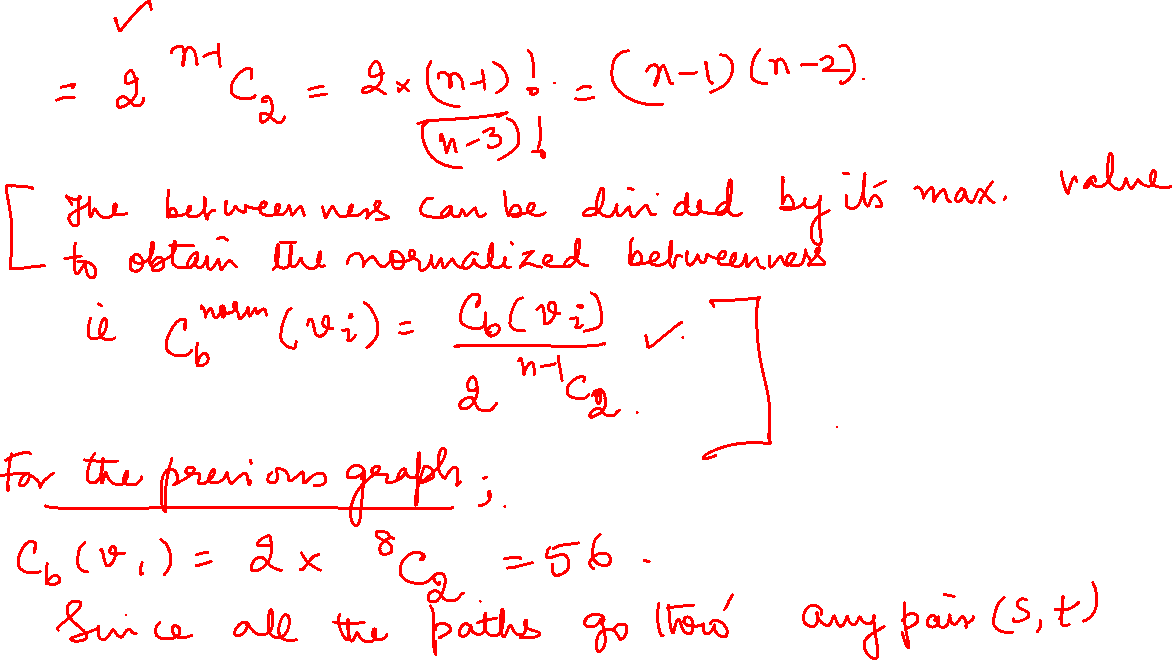 ✓
= 2 ⁿ⁻¹C₂ = 2 × (n-1)! / (n-3)! = (n-1)(n-2).
[ The betweenness can be divided by its max. value
to obtain the normalized betweenness
ie C_b^norm (v_i) = C_b(v_i) / 2 ⁿ⁻¹C₂ . ✓ ]
For the previous graph ;
C_b(v₁) = 2 × ⁸C₂ = 56 .
Since all the paths go thro' any pair (s, t)